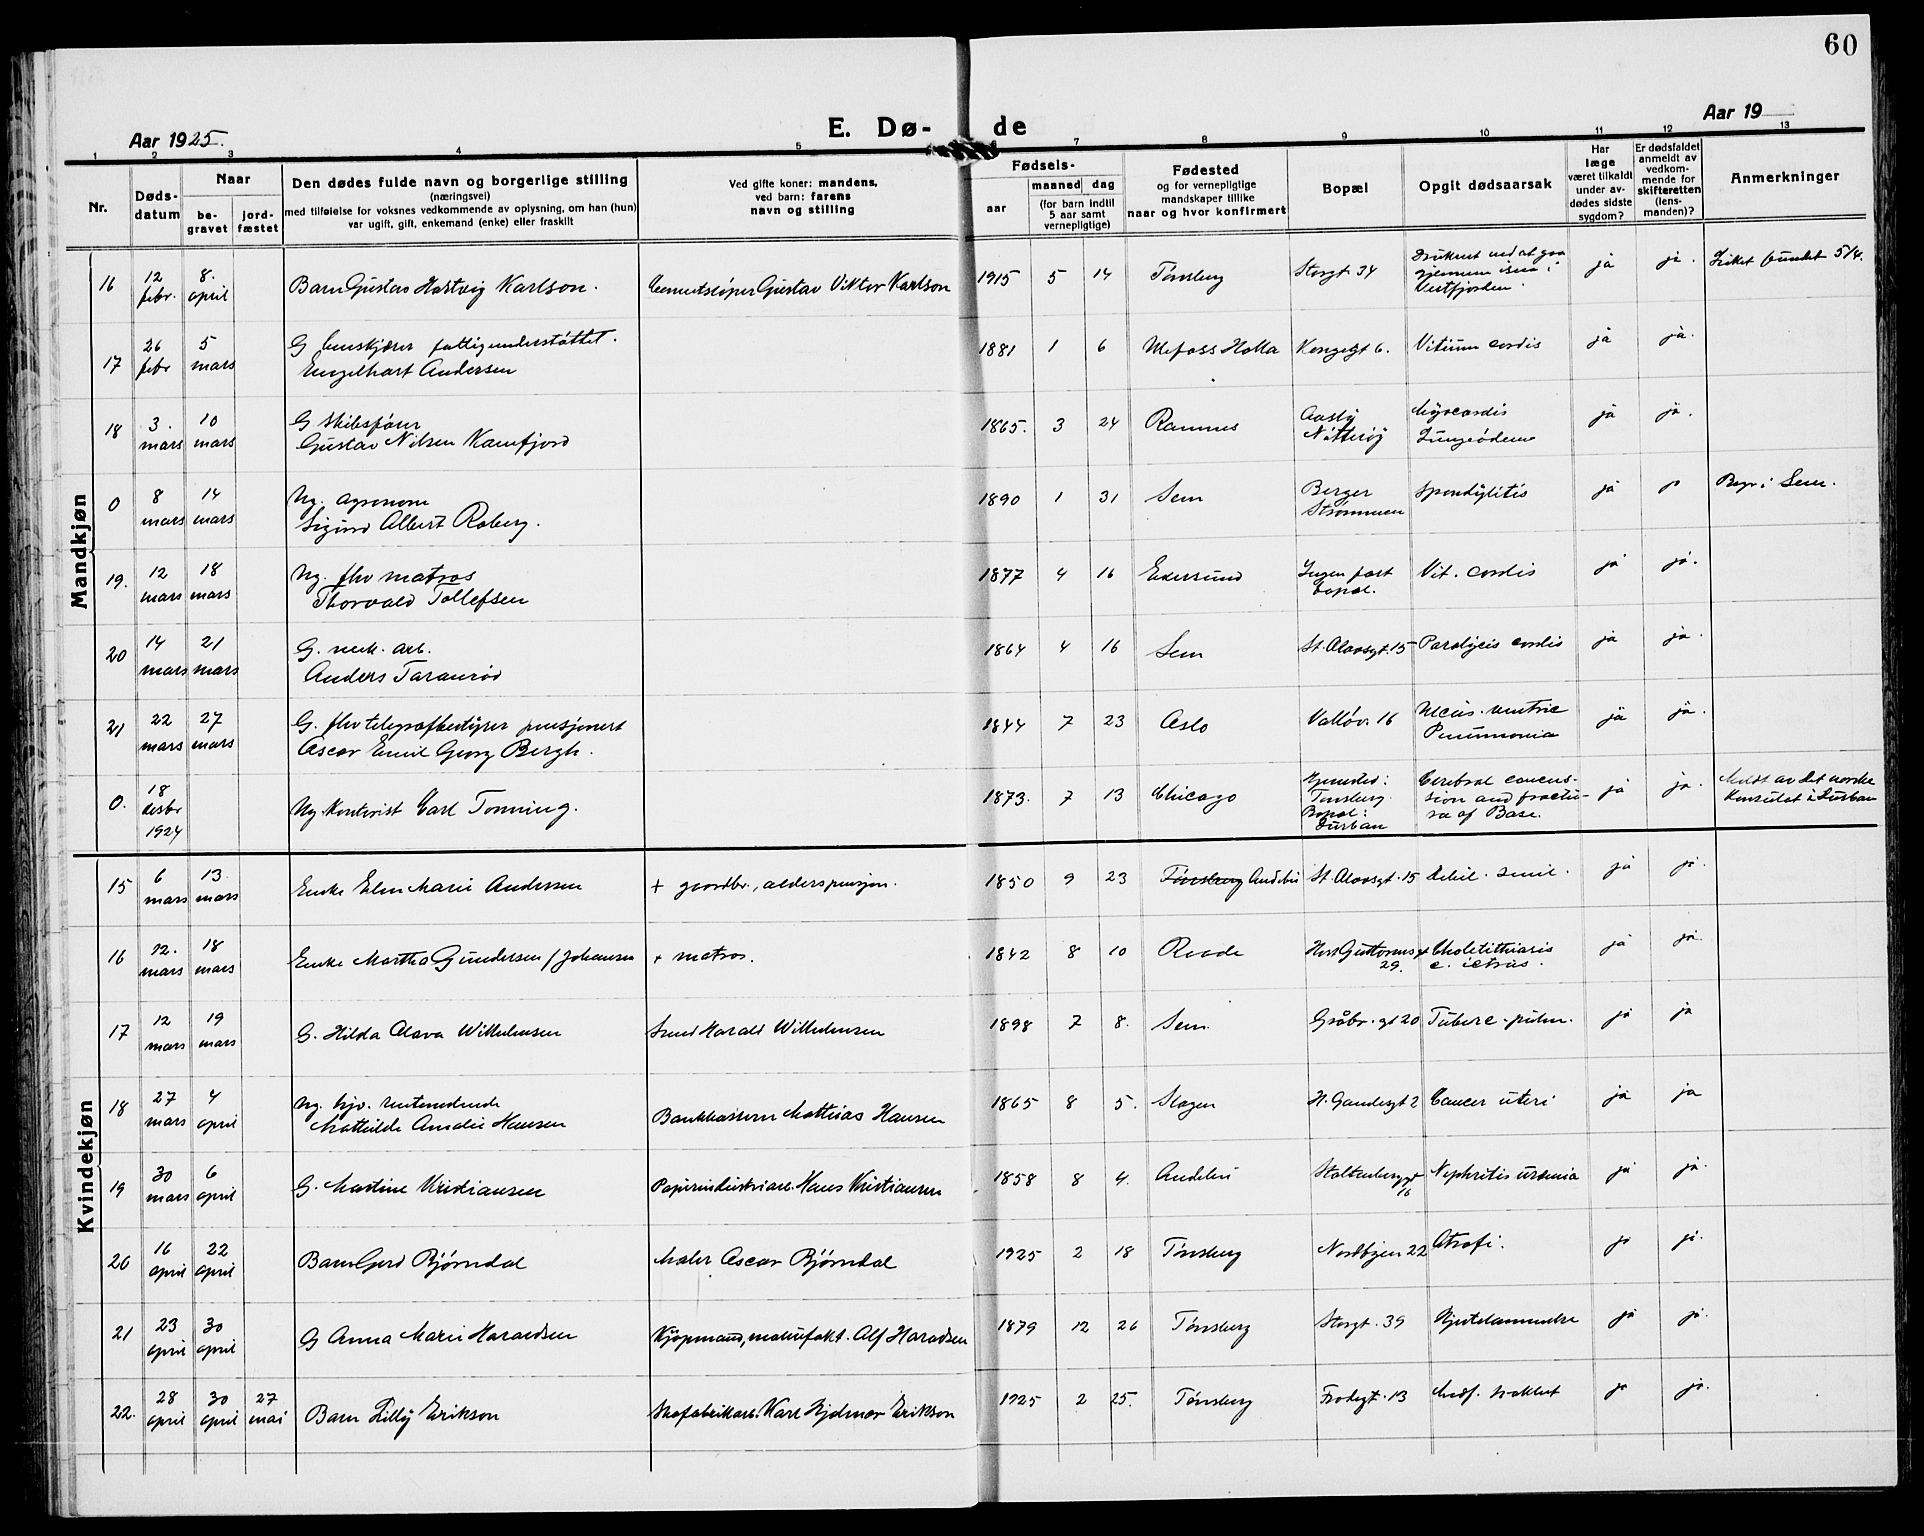 60
Aar 1925.
E. Dø- de
Aar 19
1 2 3 4 5 7 8 9 10 11 12 13
Nr.
Døds-
datum
Naar
be-
gravet
jord-
fæstet
Den dødes fulde navn og borgerlige stilling
(næringsvei)
med tilføielse for voksnes vedkommende av oplysning, om han (hun)
var ugift, gift, enkemand (enke) eller fraskilt
Ved gifte koner: mandens,
ved barn: farens
navn og stilling
Fødsels-
aar
maaned dag
(for barn indtil
5 aar samt
vernepligtige)
Fødested
og for vernepligtige
mandskaper tillike
naar og hvor konfirmert
Bopæl
Opgit dødsaarsak
Har
læge
været tilkaldt
under av-
dødes sidste
sygdom?
Er dødsfaldet
anmeldt av
vedkom-
mende for
skifteretten
(lens-
manden)?
Anmerkninger
Mandkjøn
16 12 febr. 8. april Barn Gustav Hartvig Karlson. Cementstøper Gustav Viktor Karlson 1915 5 14 Tønsberg Storgt 34 Druknet ved at gaa gjennem isen i Vestfjorden. ja ja. Liket fundet 5/4.
17 26 febr 5 mars G fattigunderstøttet.
Engelhart Andersen 1881 1 6 Ulefoss Holla Kongegt 6. Vitium cordis ja ja.
18 3. mars 10 mars G Skibsfører
Gustav Nilsen Kamfjord 1865. 3 24 Ramnes Aasly Nøtterøy Myocordis Lungeødem ja ja.
0 8 mars 14 mars Ug. agronom
Sigurd Albert Roberg. 1890 1 31 Sem Berger Strømmen Spondylitis ja ja Begr i Sem.
19. 12 mars 18 mars Ug. fhv matros
Thorvald Tollefsen 1877 4 16 Egersund Ingen fast bopæl. Vit. cordis ja ja.
20 14 mars 21 mars G. mek. arb.
Anders Taranrød 1864 4 16 Sem St. Olavsgt. 15 Paralycis cordis ja ja.
21 22 mars 27 mars G. fhv telegrafbestyrer pensjonert
Oscar Emil Georg Bergh. 1844 7 23 Oslo Valløv. 16 Ulcus. ventric Pneumonia ja ja.
0. 18 desbr 1924 Ug. Kontorist Carl Tonning. 1873. 7 13 Chicago Hjemsted: Tønsberg. Bopæl: Durban Cerebral concus- sion and fractu- re of Base. ja ja. Meldt av det norske Konsulat i Durban
Kvindekjøn
15 6 mars 13. mars Enke Elen Marie Andersen + gaardbr., alderspensjon. 1850 9 23 Tønsberg Andebu St. Olavsgt. 15 Debil. senil. ja ja.
16 12. mars 18 mars Enke Martha Gundersen / Johansen + matros. 1842 8 10 Raade Hert Guttormsgt 29. Cholelithiasis c. ictrus. ja ja.
17 12 mars 19 mars G. Hilda Olava Wilhelmsen Svend Harald Wilhelmsen 1898 7 8. Sem. Gråbr. gt 20 Tuberc. pulm. ja ja
18 27 mars 4 april Ug. hjv.
Mathilde Amalie Hansen Mathias Hansen 1865 8 5. Slagen H. Gandesgt 2 Cancer uteri ja ja
19 30 mars 6 april G. Martine Kristiansen Papirindustriarb. Hans Kristiansen 1858 8 4. Andebu Stoltenberggt 16 Nephritis uremia ja ja.
20 16 april 22 april Barn Gerd Bjørndal Maler Oscar Bjørndal 1925 2 18 Tønsberg Nordbyen 22 Atrofi. ja ja.
21 23 april 30 april G Anna Marie Haraldsen Kjøpmand, manufakt. Alf Haraldsen 1879 12 26 Tønsberg Storgt. 39 Hjertelammelse ja ja.
22. 28 april 30 april 27 mai Barn Lilly Erikson Skofabrikarb. Karl Hjalmar Erikson 1925 2 25. Tønsberg Frodegt. 13 Medf. svakhet ja ja.